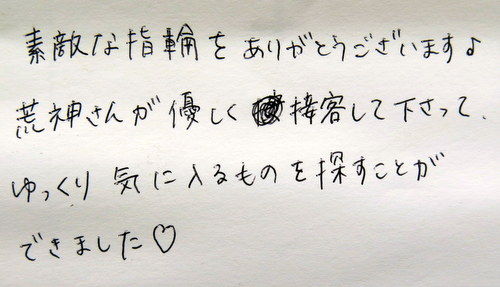 素敵な指輪をありがとうございます♪
荒神さんが優しく接客して下さって、
ゆっくり気に入るものを探すことが
できました♡